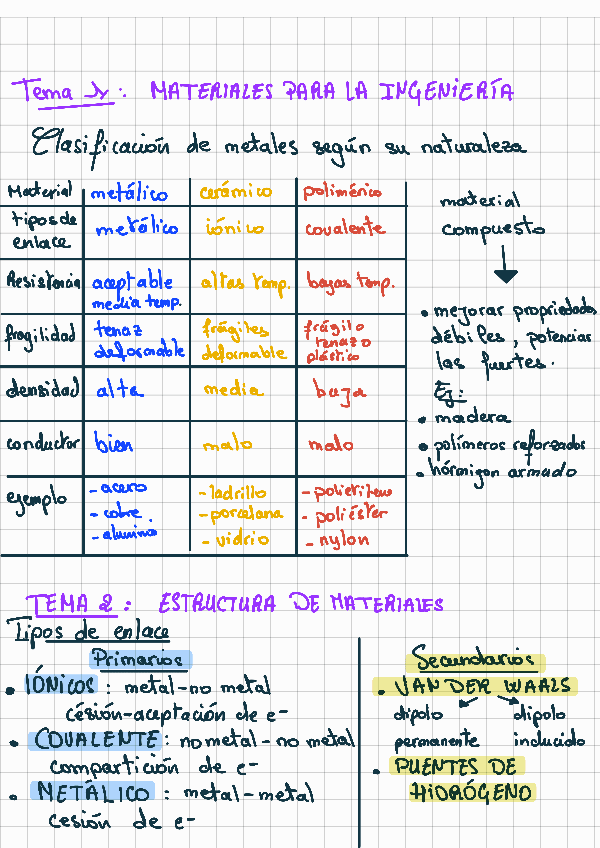 Tema 1: MATERIALES PARA LA INGENIERÍA
Clasificación de metales según su naturaleza
Material metálico cerámico polimérico
tipos de enlace metálico iónico covalente
Resistencia aceptable media temp. altas temp. bajas temp.
fragilidad tenaz deformable frágiles deformable frágil o tenaz o plástico
densidad alta media baja
conductor bien malo malo
ejemplo - acero - ladrillo - polietileno
- cobre - porcelana - poliéster
- aluminio - vidrio - nylon
material
compuesto
• mejorar propriedades
débiles, potenciar
las fuertes.
Ej:
• madera
• polímeros reforzados
• hórmigon armado
TEMA 2: ESTRUCTURA DE MATERIALES
Tipos de enlace
Primarios
• IÓNICOS: metal-no metal
césión-aceptación de e-
• COVALENTE: no metal-no metal
compartición de e-
• METÁLICO: metal-metal
cesión de e-
Secundarios
• VAN DER WAALS
dipolo dipolo
permanente inducido
• PUENTES DE
HIDRÓGENO